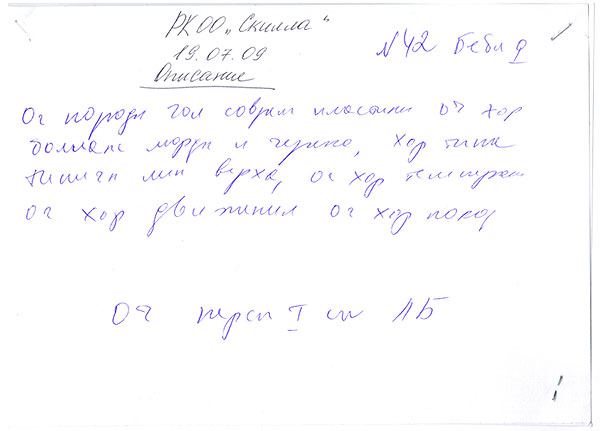 РКОО „Скилла“
19.07.09
Описание
N 42 Беби
Оч породн гол соврем пластики оч хор
баланс морды и черепа, хор типа
типичн лин верха, оч хор темперам
оч хор движения оч хор поход
Оч персп I см ЛБ